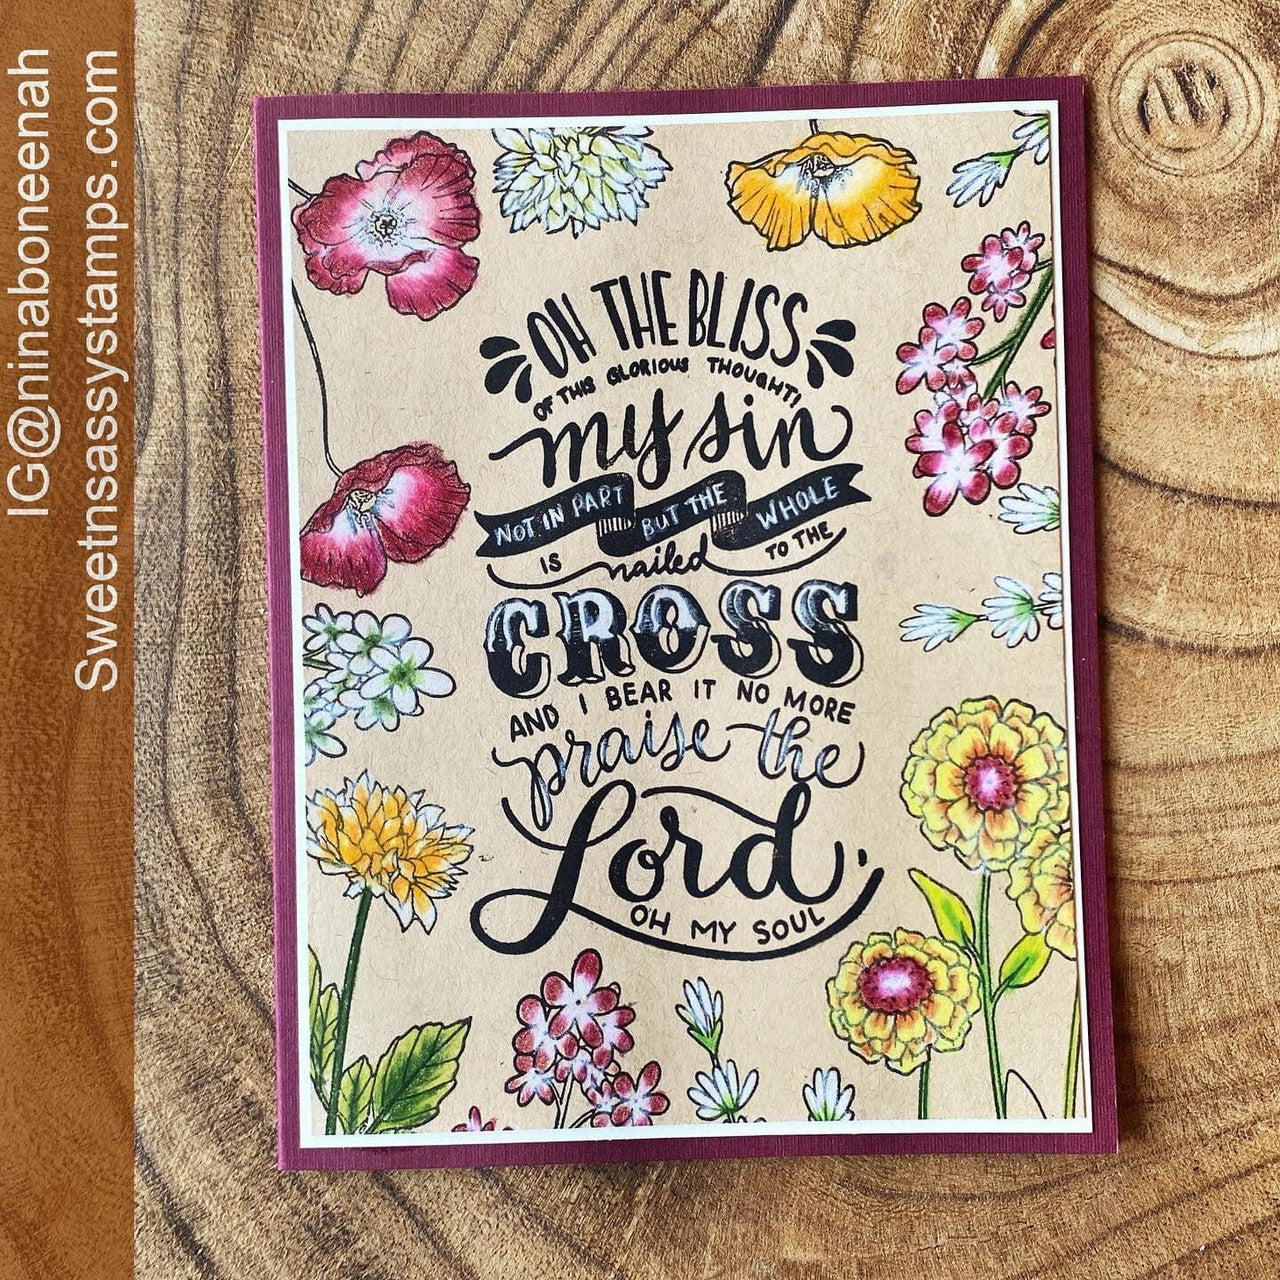 IG@ninaboneenah
Sweetnsassystamps.com
OH THE BLISS
OF THIS GLORIOUS THOUGHT!
my sin
NOT IN PART BUT THE WHOLE
IS nailed TO THE
CROSS
AND I BEAR IT NO MORE
praise the
Lord,
OH MY SOUL